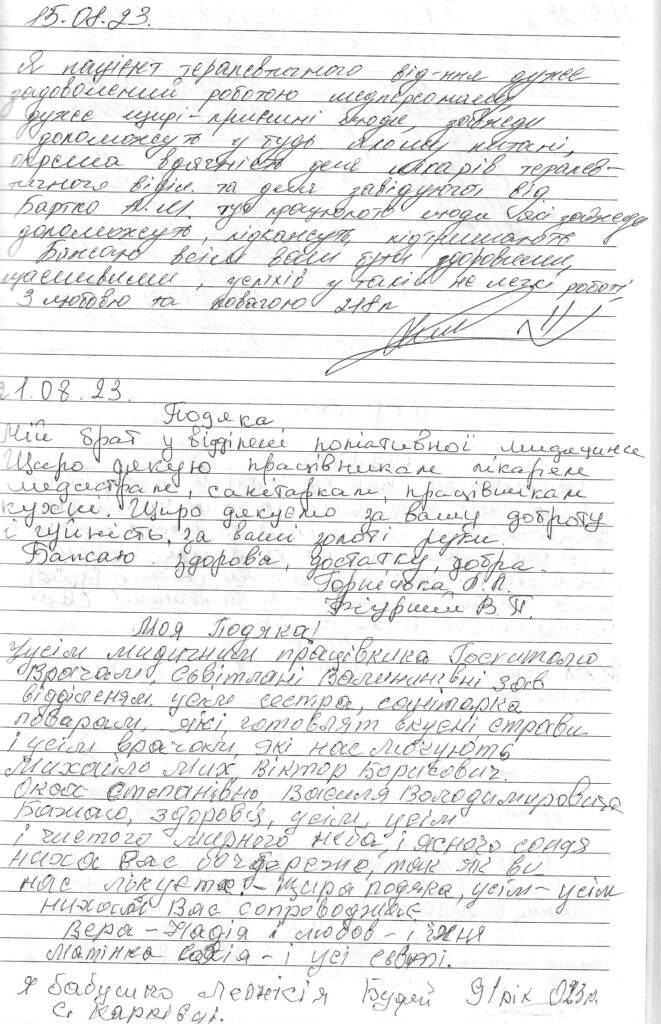 15.08.23.
Я пацієнт терапевтичного від-ння дуже
задоволений роботою медперсоналу,
дуже щирі - приємні люди, завжди
допоможуть у будь якому питані,
окрема вдячність для лікарів терапев-
тичного відділ. та для завідуючої від.
Бартко тут працюють люди які завжди
допоможуть, підкажуть, підтримають
Бажаю всім вам бути здоровими,
щасливими, успіхів у такій не легкі роботі
З любовю та повагою 218п
21.08.23.
Подяка
Мій брат у відділені попіативної
Щиро дякую працівникам лікарем
медсестрам, санітаркам, працівникам
кухні. Щиро дякуємо за вашу доброту
і чуйність, за ваші золоті руки.
Бажаю здоровя, достатку, добра.
В.П.
Моя Подяка!
Усім мидичним працівника Госпиталю
Врачам, Світлані зав
відділеням, усім сестра, санітарка
поварам, які готовлят вкусні страви
і усім врачам, які нас лічують
Михайло Мих Віктор Борисович.
Степанівна Василя Володимировича
Бажаю, здоровія, усім, усім
і чистого мирного неба, і ясного сонця
нихай Вас береже, так як ви
нас лікуєте - щира подяка, усім - усім
нихай Вас сопроводжає
Вера - Надія і любов - і їхня
Матінка - і усі
я бабушка Будей 91 рік 023 м.
с. Карківці.